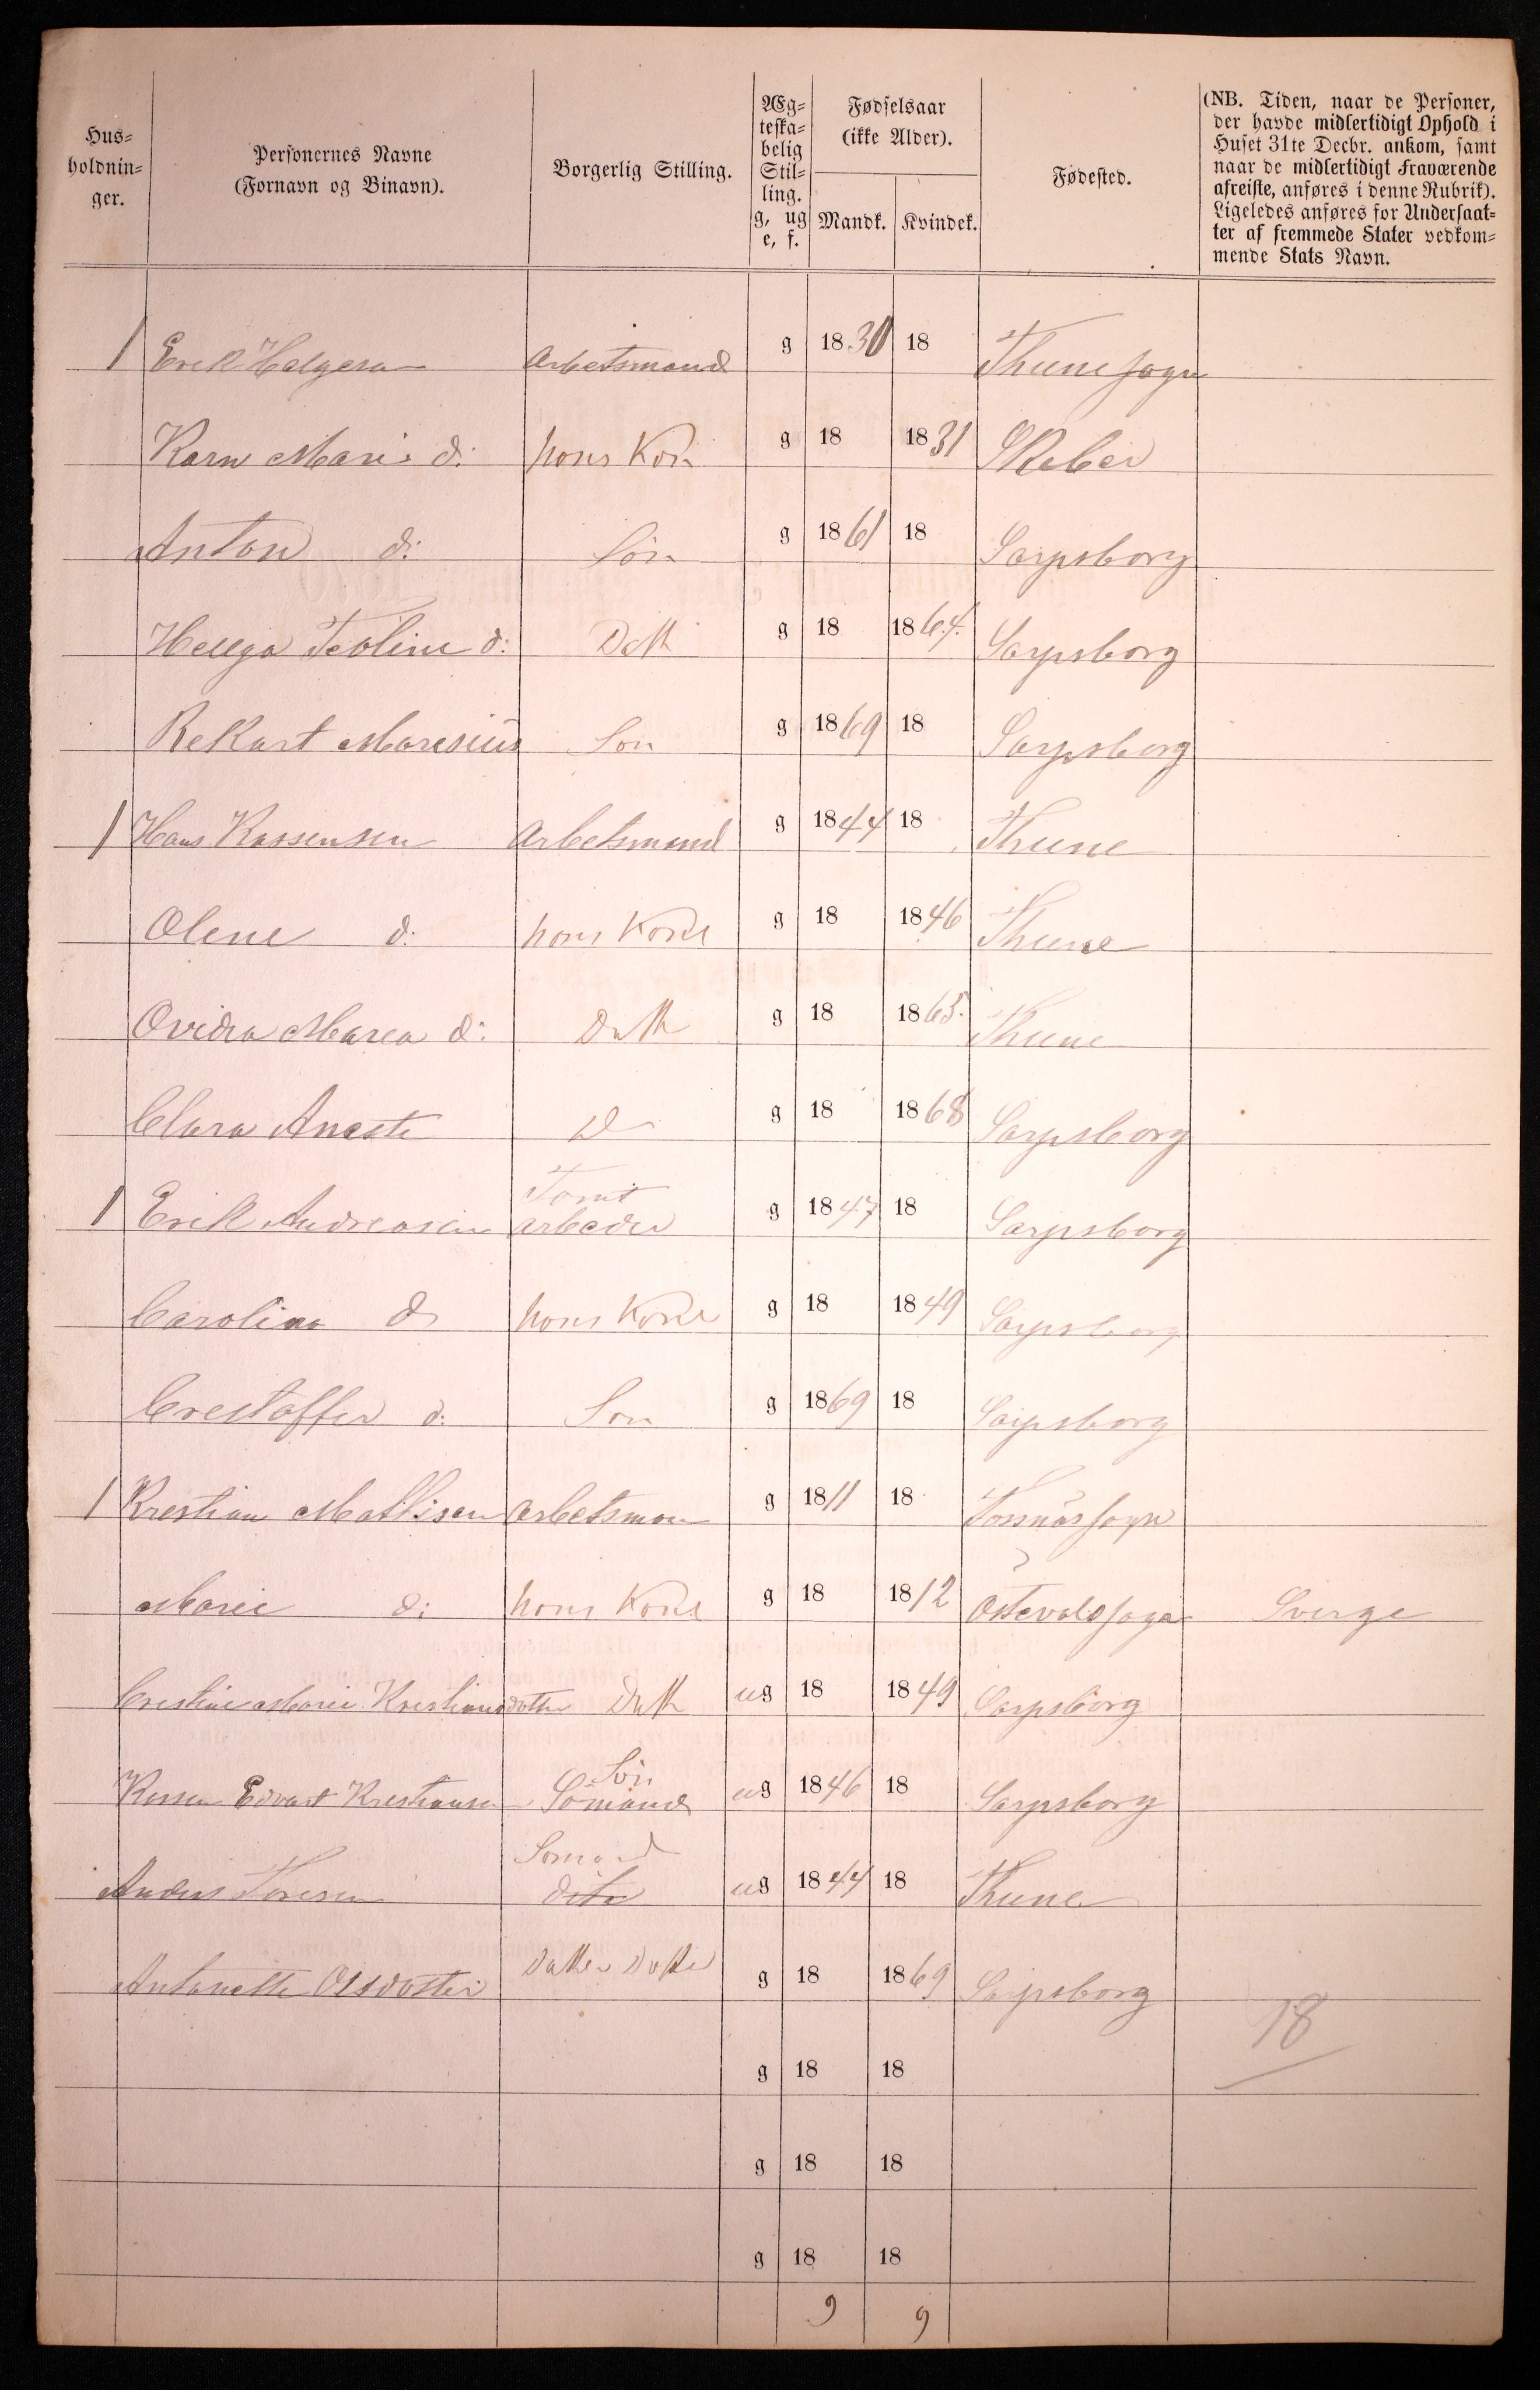 Hus-
holdnin-
ger.
Personernes Navne
(Fornavn og Binavn).
Borgerlig Stilling.
Æg-
teska-
belig
Stil-
ling.
g, ug
e, f.
Fødselsaar
(ikke Alder).
Mandk. Kvindek.
Fødested.
(NB. Tiden, naar de Personer,
der havde midlertidigt Ophold i
Huset 31te Decbr. ankom, samt
naar de midlertidigt Fraværende
afreiste, anføres i denne Rubrik).
Ligeledes anføres for Undersaat-
ter af fremmede Stater vedkom-
mende Stats Navn.
1 Erik Helgesen Arbetsmand g 1830 18 Thune sogn
Karn Marie d: hons Kon g 18 1831 Skeber
Anton d: Sön g 1861 18 Sarpsborg
Hellga Teoline d: Datt g 18 1864. Sarpsborg
Rekart Maresius Son g 1869 18 Sarpsborg
1 Hans Kassensen Arbetsmand g 1844 18 Thune
Olene d: hons Kone g 18 1846 Thune
Ovidia Marea d: Datt g 18 1865. Thune
Clara Anette D g 18 1868 Sarpsborg
1 Erik Andreasen Tomt arbeder g 1847 18 Sarpsborg
Carolina d hons Kone g 18 1849 Sarpsborg
Crestoffer d: Son g 1869 18 Sarpsborg
1 Krestian Mattisen Arbetsman g 1811 18 Torsnäs sogn
Marie d: hons Kone g 18 1812 Ostevold sogn Sverge
Crestine Marie Krestiansdotter Datt ug 18 1849 Sarpsborg
Kassen Edvart Krestiansen Sön Sömand ug 1846 18 Sarpsborg
Anders Toresen Somand dito ug 1844 18 Thune
Antonette Olsdotter Datter Dotter g 18 1869 Sarpsborg
18
g 18 18
g 18 18
g 18 18
9 9